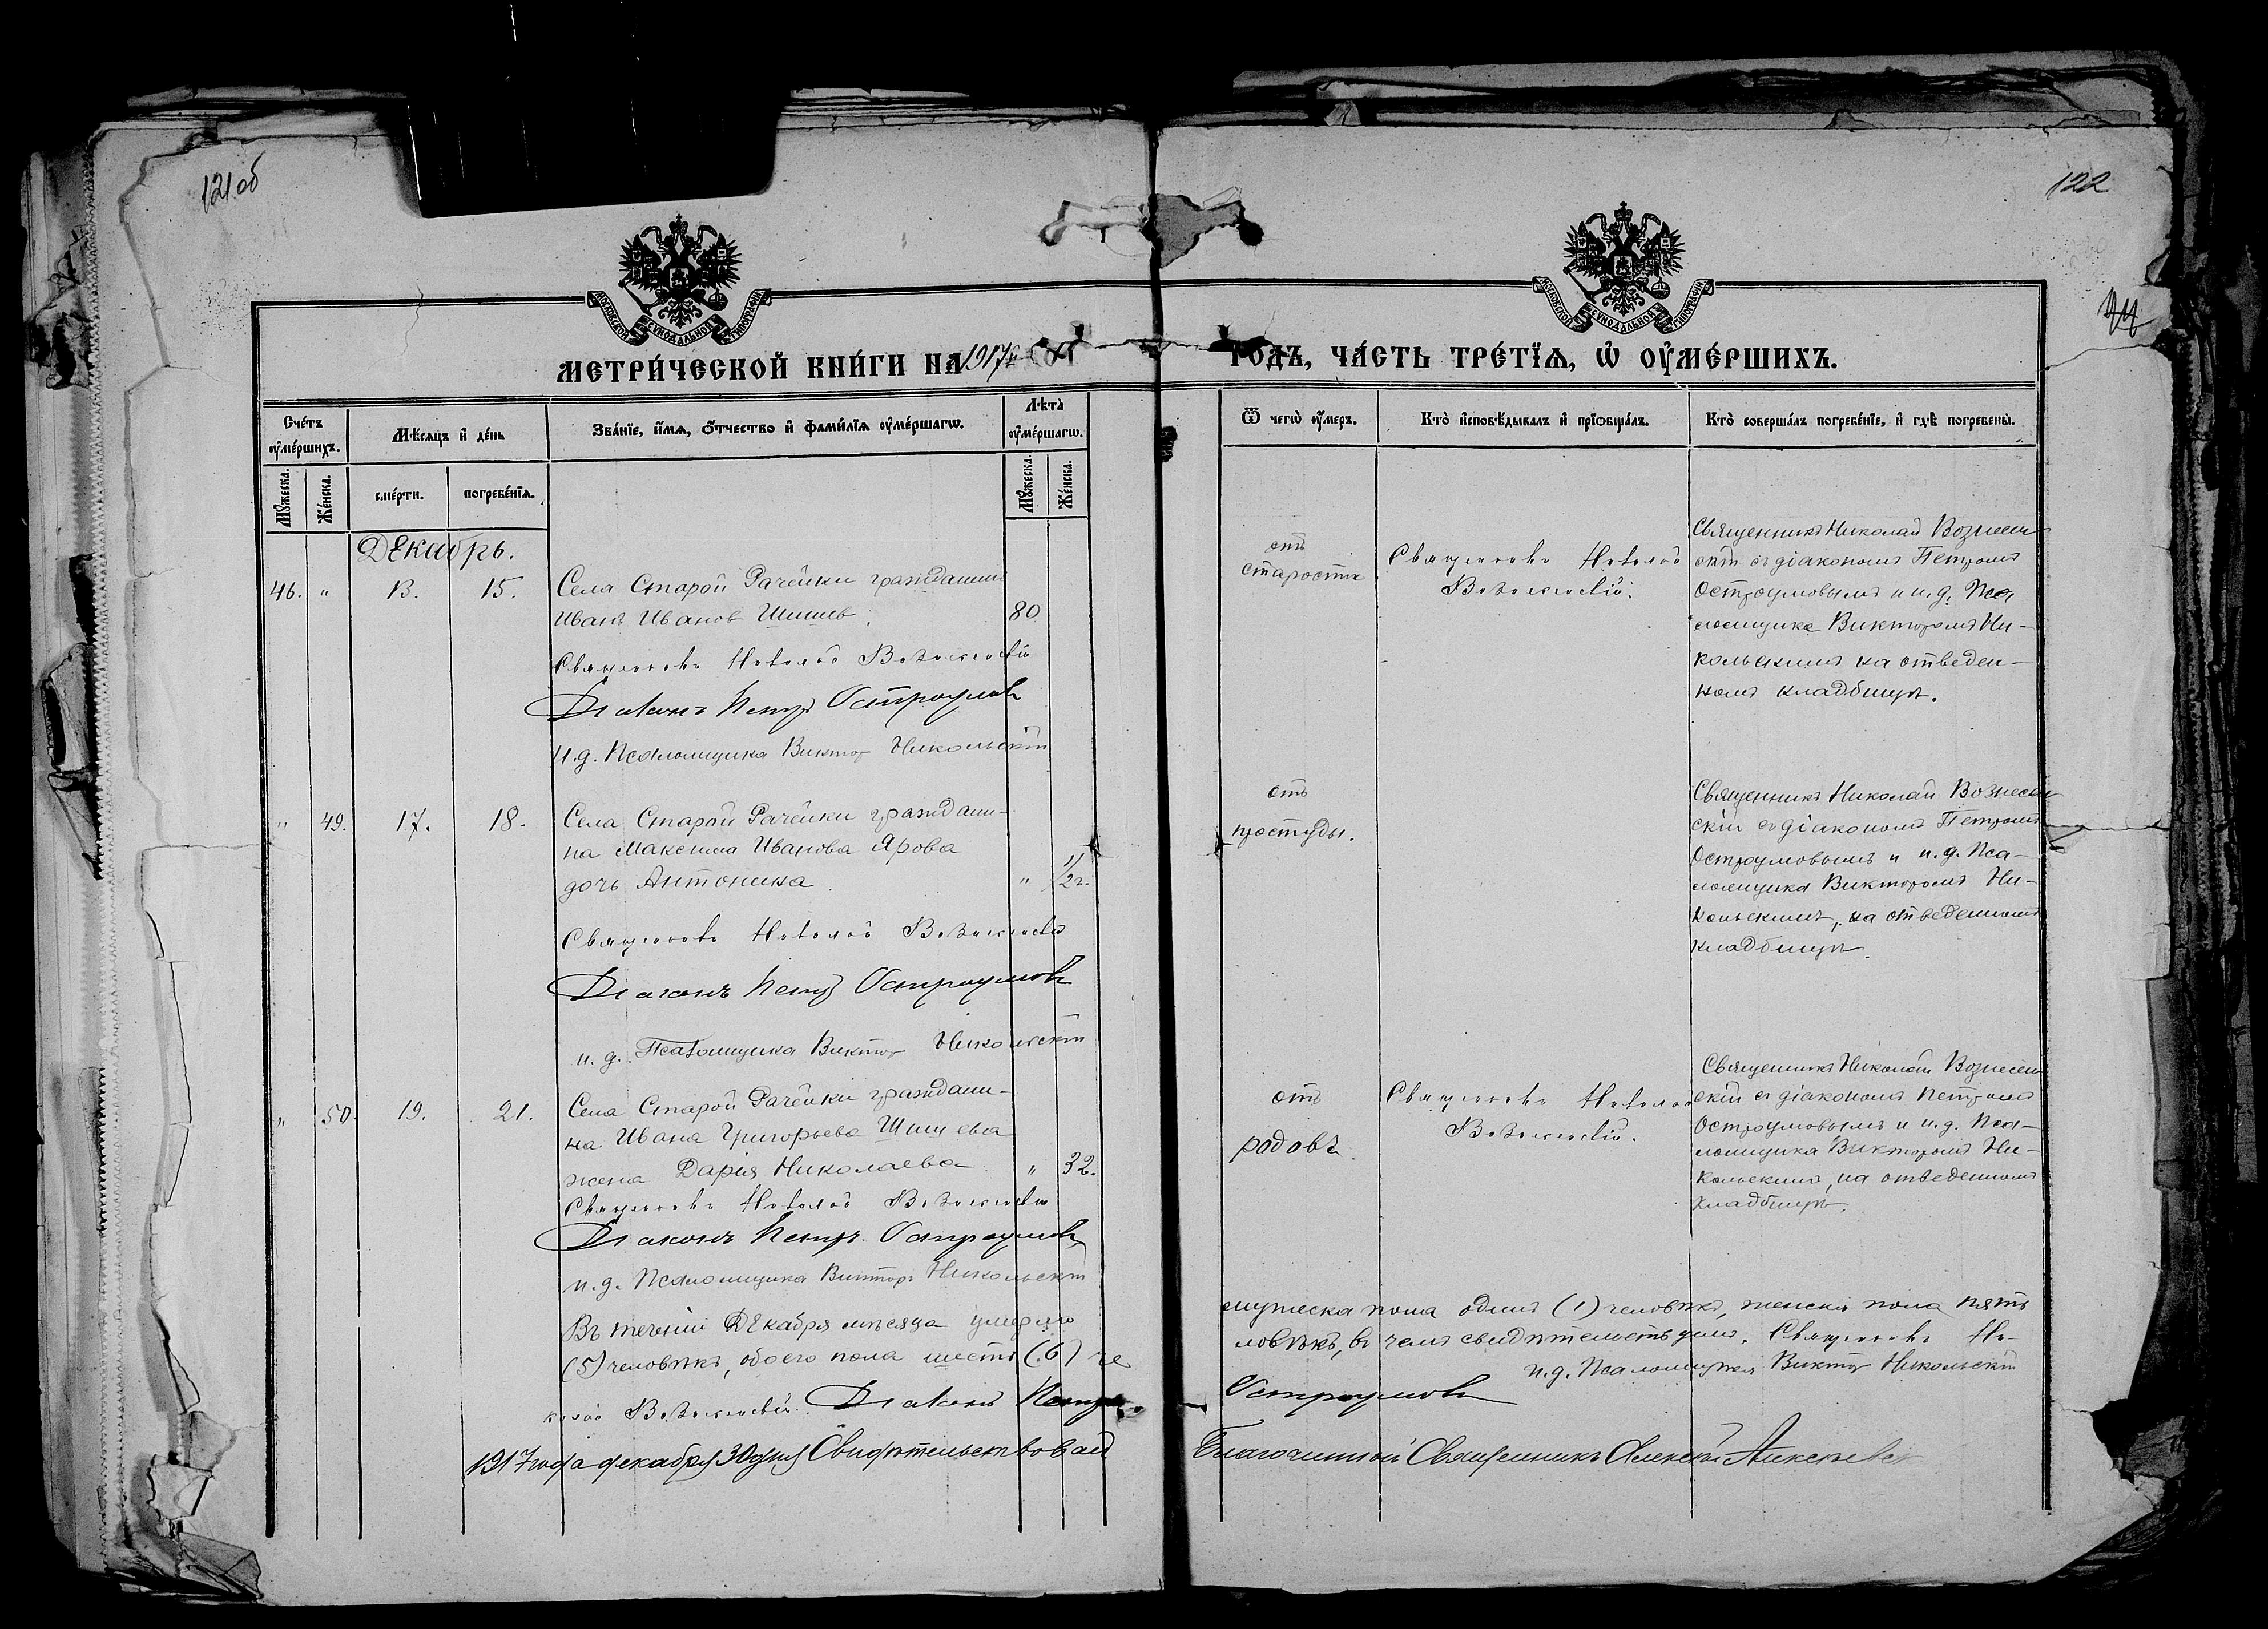 121 об
122
МОСКОВСКОЙ СѴНОДАЛЬНОЙ ТИПОГРАФІИ
МОСКОВСКОЙ СѴНОДАЛЬНОЙ ТИПОГРАФІИ
МЕТРИ́ЧЕСКОЙ КНИ́ГИ НА 1917й ГОДЪ, ЧА́СТЬ ТРЕ́ТЇѦ, Ѡ҆ ОУ҆МЕ́РШИХЪ.
Сче́тъ оу҆ме́ршихъ.
Мꙋ́жеска.
Же́нска.
Мѣ́сяцъ и҆ де́нь
сме́рти.
погребе́нїѧ.
Зва́нїе, и҆́мѧ, ѻ҆́тчество и҆ фами́лїѧ оу҆ме́ршагѡ.
Лѣ́та оу҆ме́ршагѡ.
Мꙋ́жеска.
Же́нска.
Ѿ чегѡ̀ оу҆́меръ.
Кто̀ и҆сповѣ́дывалъ и҆ прїѡбща́лъ.
Кто̀ соверша́лъ погребе́нїе, и҆ гдѣ̀ погребены̀.
Декабрь.
46. " 13. 15.
Села Старой Рачейки гражданин
Иванъ Иванов Шишов.
80
Священникъ Николай Вознесенскій
Діаконъ Петръ Остроумовъ
И.д. Псаломщика Виктор Никольскій
отъ
старости
Священникъ Николай
Вознесенскій.
Священникъ Николай Вознесен
скій съ діакономъ Петромъ
Остроумовымъ и и.д. Пса
ломщика Викторомъ Ни-
кольскимъ на отведен-
номъ кладбищѣ.
" 49. 17. 18.
Села Старой Рачейки граждани-
на Максима Иванова Ярова
дочь Антонина.
" 1/2 г.
Священникъ Николай Вознесенскій
Діаконъ Петръ Остроумовъ
и. д. Псаломщика Виктор Никольскій
отъ
простуды.
Священникъ Николай Вознесен
скій съ діакономъ Петромъ
Остроумовымъ и и.д. Пса-
ломщика Викторомъ Ни-
кольскимъ, на отведенномъ
кладбищѣ.
" 50. 19. 21.
Села Старой Рачейки граждани-
на Ивана Григорьева Шишева
жена Дарія Николаева
" 32.
Священникъ Николай Вознесенскій
Діаконъ Петръ Остроумовъ
и.д. Псаломщика Викторъ Никольскій
отъ
родовъ.
Священникъ Николай
Вознесенскій.
Священникъ Николай Вознесен
скій съ діакономъ Петромъ
Остроумовымъ и и.д. Пса-
ломщика Викторомъ Ни-
кольскимъ, на отведенномъ
кладбищѣ.
Въ теченіи Декабря мѣсяца умерло мужеска пола одинъ (1) человѣкъ, женска пола пять
(5) человѣкъ, обоего пола шесть (6) че ловѣкъ, въ чемъ свидѣтельствуемъ. Священникъ Ни-
колай Вознесенскій. Діаконъ Петръ Остроумовъ
и.д. Псаломщика Виктор Никольскій
1917 года декабря 30 дня Свидѣтельствовалъ Благочинный Священникъ Алексѣй Алексѣевъ